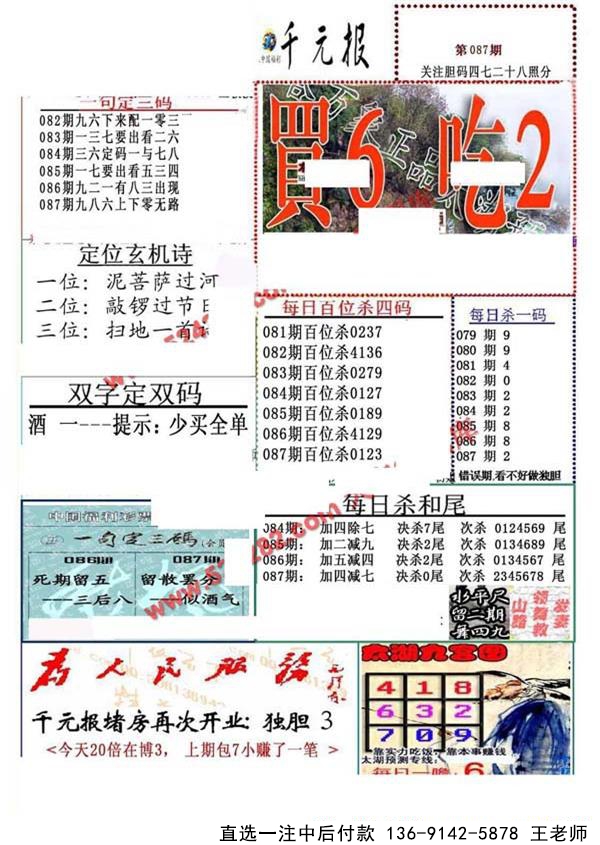 千元报
第087期
关注胆码四七二十八照分
一句定三码
082期九六下来配一零三
083期一三七要出看二六
084期三六定码一与七八
085期一七要出看五三四
086期九二一有八三出现
087期九八六上下零无路
買6 吃2
定位玄机诗
一位：泥菩萨过河
二位：敲锣过节日
三位：扫地一首
每日百位杀四码
081期百位杀0237
082期百位杀4136
083期百位杀0279
084期百位杀0127
085期百位杀0189
086期百位杀4129
087期百位杀0123
每日杀一码
079 期 9
080 期 9
081 期 4
082 期 0
083 期 2
084 期 2
085 期 8
086 期 8
087 期 2
错误期,看不好做独胆
双字定双码
酒 一---提示：少买全单
中国福利彩票
一句定三码(会员
086期 087期
死期留五 留散罢分
---三后八 ---似酒气
每日杀和尾
084期： 加四除七 决杀7尾 次杀 0124569 尾
085期： 加二减九 决杀2尾 次杀 0134689 尾
086期： 加五减四 决杀2尾 次杀 0134567 尾
087期： 加四减七 决杀0尾 次杀 2345678 尾
留二期
舞四九
山路
领舞教
发妻
为人民服务
千元报堵房再次开业：独胆 3
<今天20倍在博3， 上期包7小赚了一笔 >
太湖九宫图
4 1 8
6 3 2
7 0 9
靠实力吃饭，靠本事赚钱
太湖预测专线：
每日一胆 6
直选一注中后付款 136-9142-5878 王老师